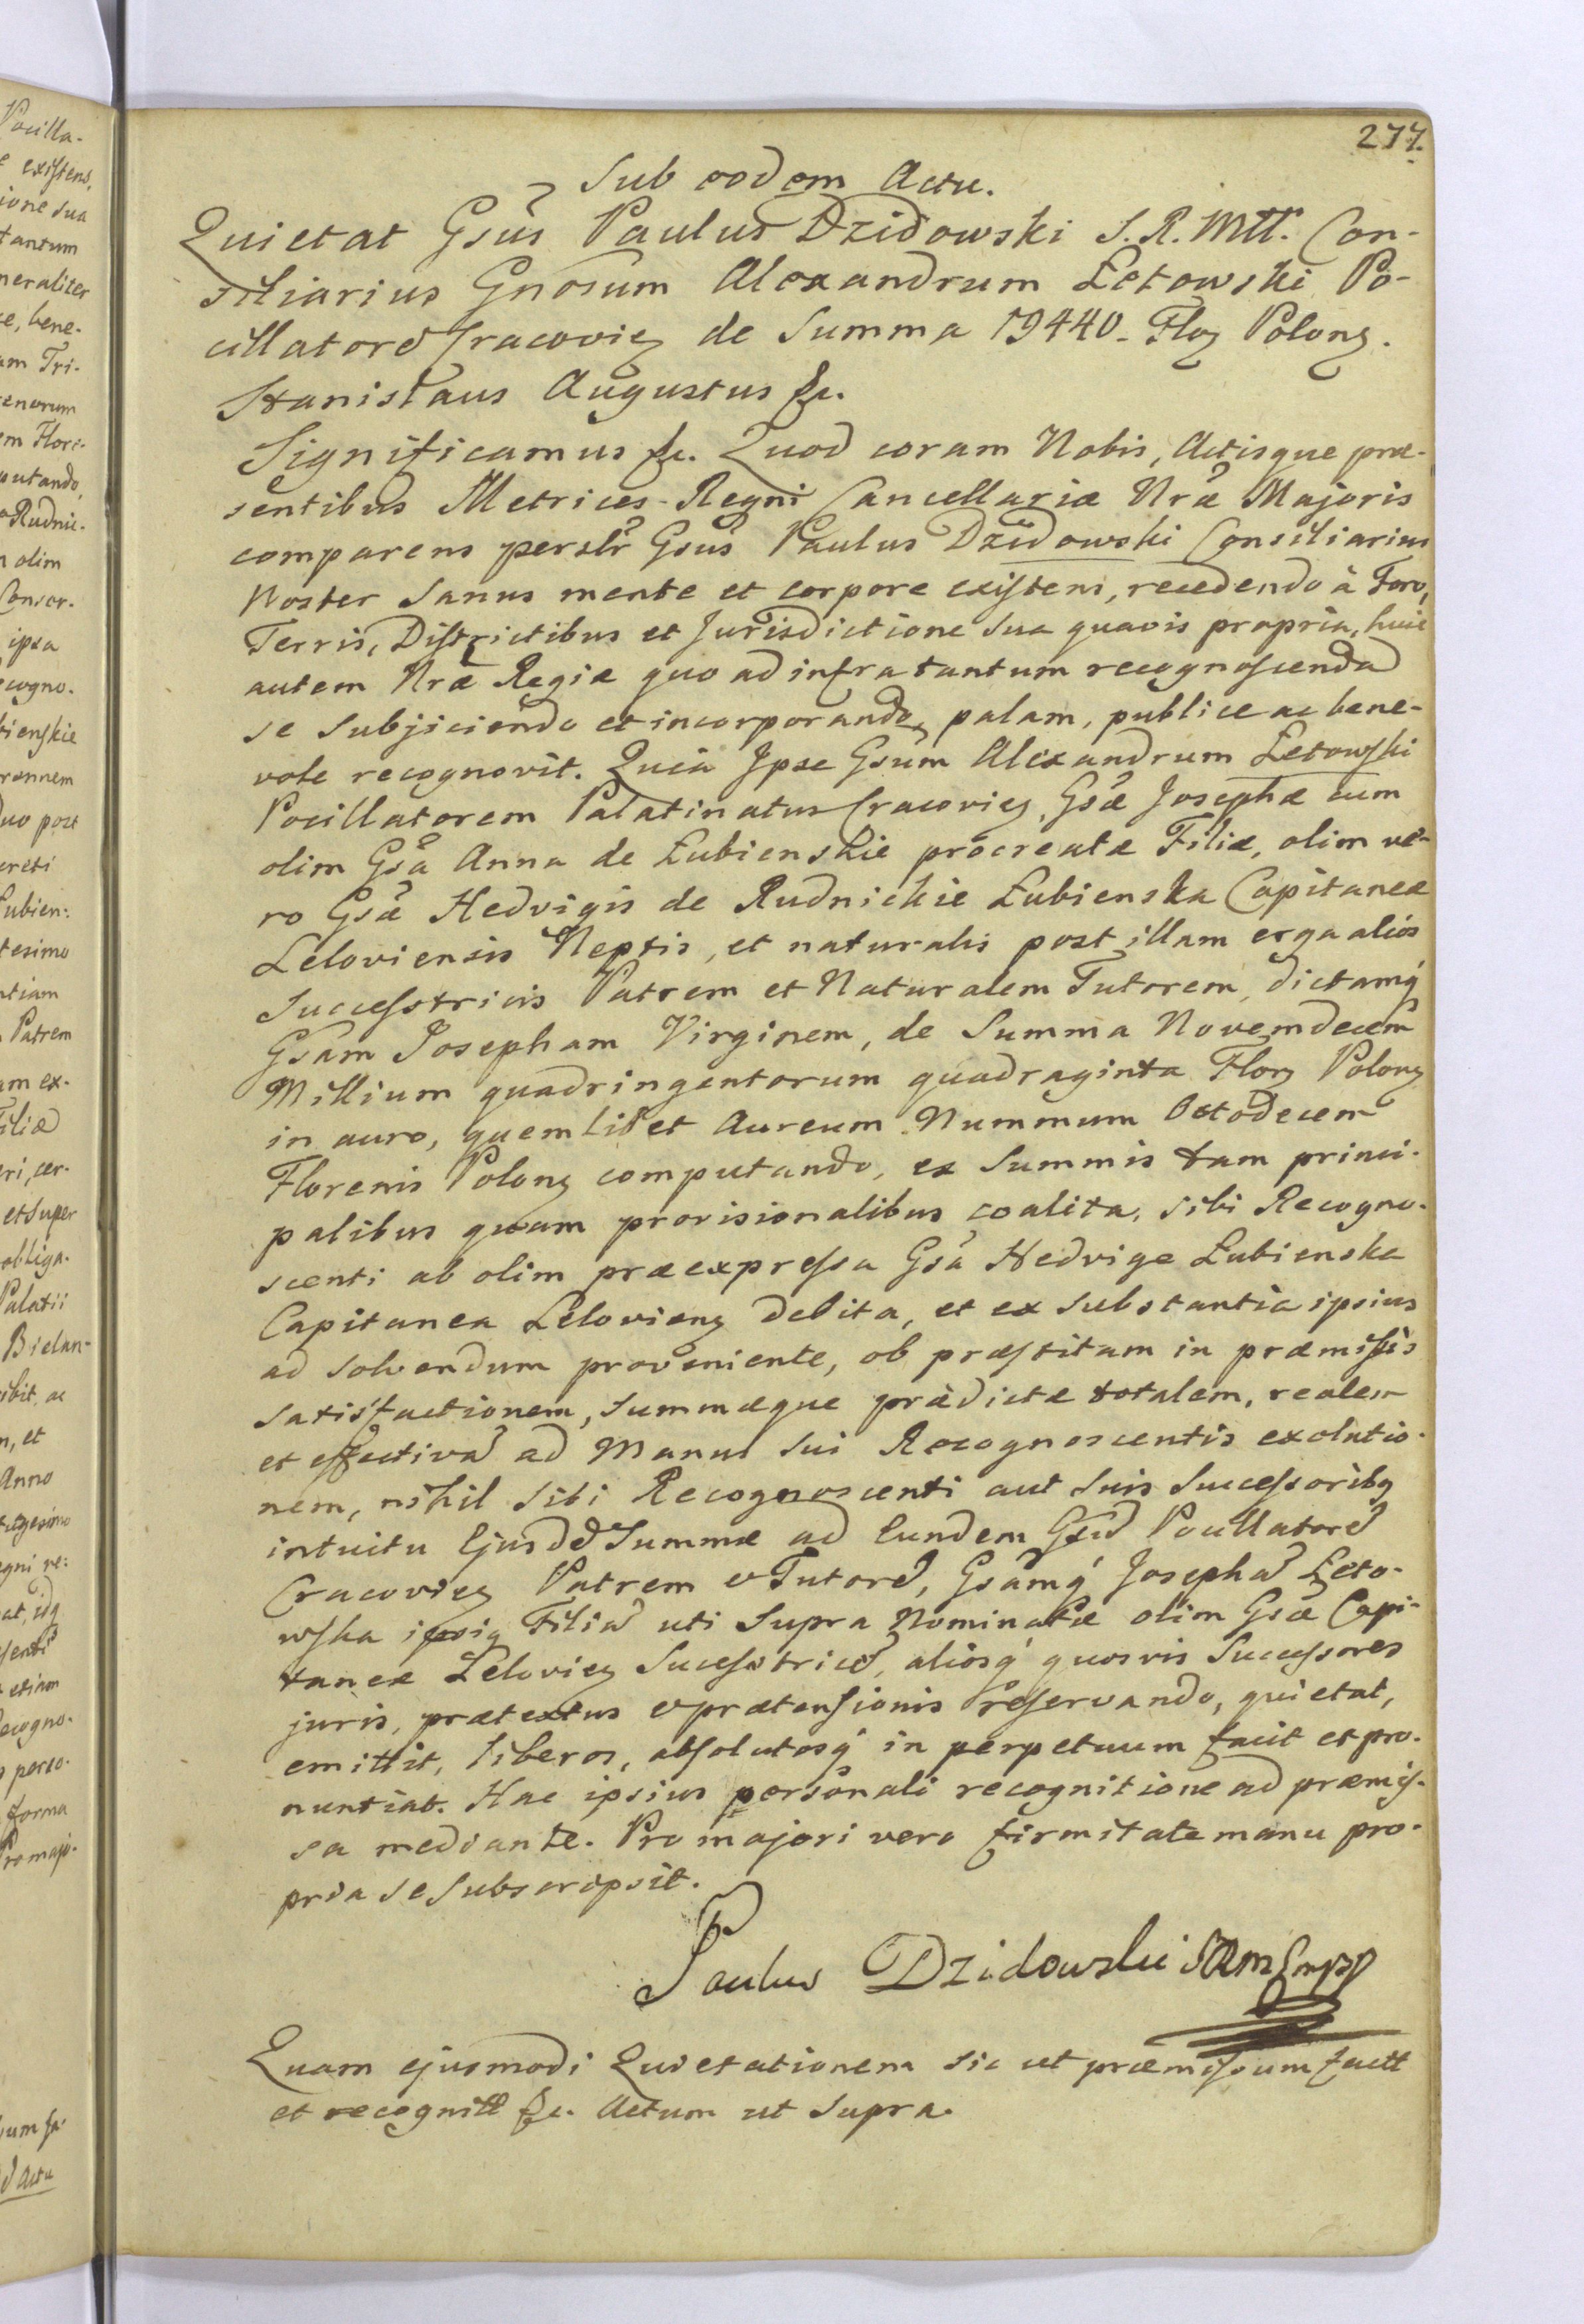 277.
Sub eodem Actu.
Quietat Gsus Paulus Dzidowski S. R. Mtt. Con-
siliarius Gnosum Alexandrum Łetowski Po-
cillatore Cracovie de Summa 19440 - Flo Polon.
Stanislaus Augustus &c.
Significamus &c. Quod coram Nobis, Actisque præ-
sentibus Metrices Regni Cancellariæ Nræ Majoris
comparens perslr Gsus Paulus Dzidowski Consiliarius
Noster Sanus mente et corpore existens, recedendo à Foro,
Terris, Districtibus et Jurisdictione Sua quavis propria, huic
autem Nræ Regiæ quo ad infra tantum recognoscenda
se Subjiciendo et incorporando, palam, publice ac bene-
vole recognovit. Quia Ipse Gsum Alexandrum Łetowski
Pocillatorem Palatinatus Cracovien, Gsæ Josephæ cum
olim Gsa Anna de Łubienskie procreatæ Filiæ, olim ve-
ro Gsæ Hedvigis de Rudnickie Łubienska Capitaneæ
Leloviensis Neptis, et naturalis post illam erga alios
Successtricis Patrem et Naturalem Tutorem, dictamq
Gsam Josepham Virginem, de Summa Novemdecem
Millium quadringentorum quadraginta Flor Polon
in auro, quemlibet Aureum Nummum Octodecem
Florenis Polon computando, ex Summis tam princi-
palibus quam provisionalibus coalita, sibi Recogno-
scenti ab olim præexpressa Gsa Hedvige Łubienska
Capitanea Lelovien debita, et ex substantia ipsius
ad solvendum proveniente, ob præstitam in præmissis
satisfactionem, summæque prædictæ totalem, realem
et effectiva ad Manus sui Recognoscentis exolutio-
nem, nihil sibi Recognoscenti aut Suis Successoribq
intuitu Ejusdd Summæ ad Eundem Gsu Pocillatore
Cracovien Patrem & Tutore, Gsamq Josepha Łeto-
wska ipsiq Filia uti Supra Nominatæ olim Gsæ Capi-
taneæ Lelovien Sucesstrice, aliosq quosvis Successores
juris, prætextus & prætensionis reservando, quietat,
emittit, liberos, absolutosq in perpetuum facit et pro-
nuntiat. Hac ipsius personali recognitione ad præmis-
sa mediante. Pro majori vero firmitate manu pro-
pria se subscripsit.
Paulus Dzidowski
Quam ejusmodi Quietationem sic ut præmissum facit
et recognitt &c. Actum ut Supra.